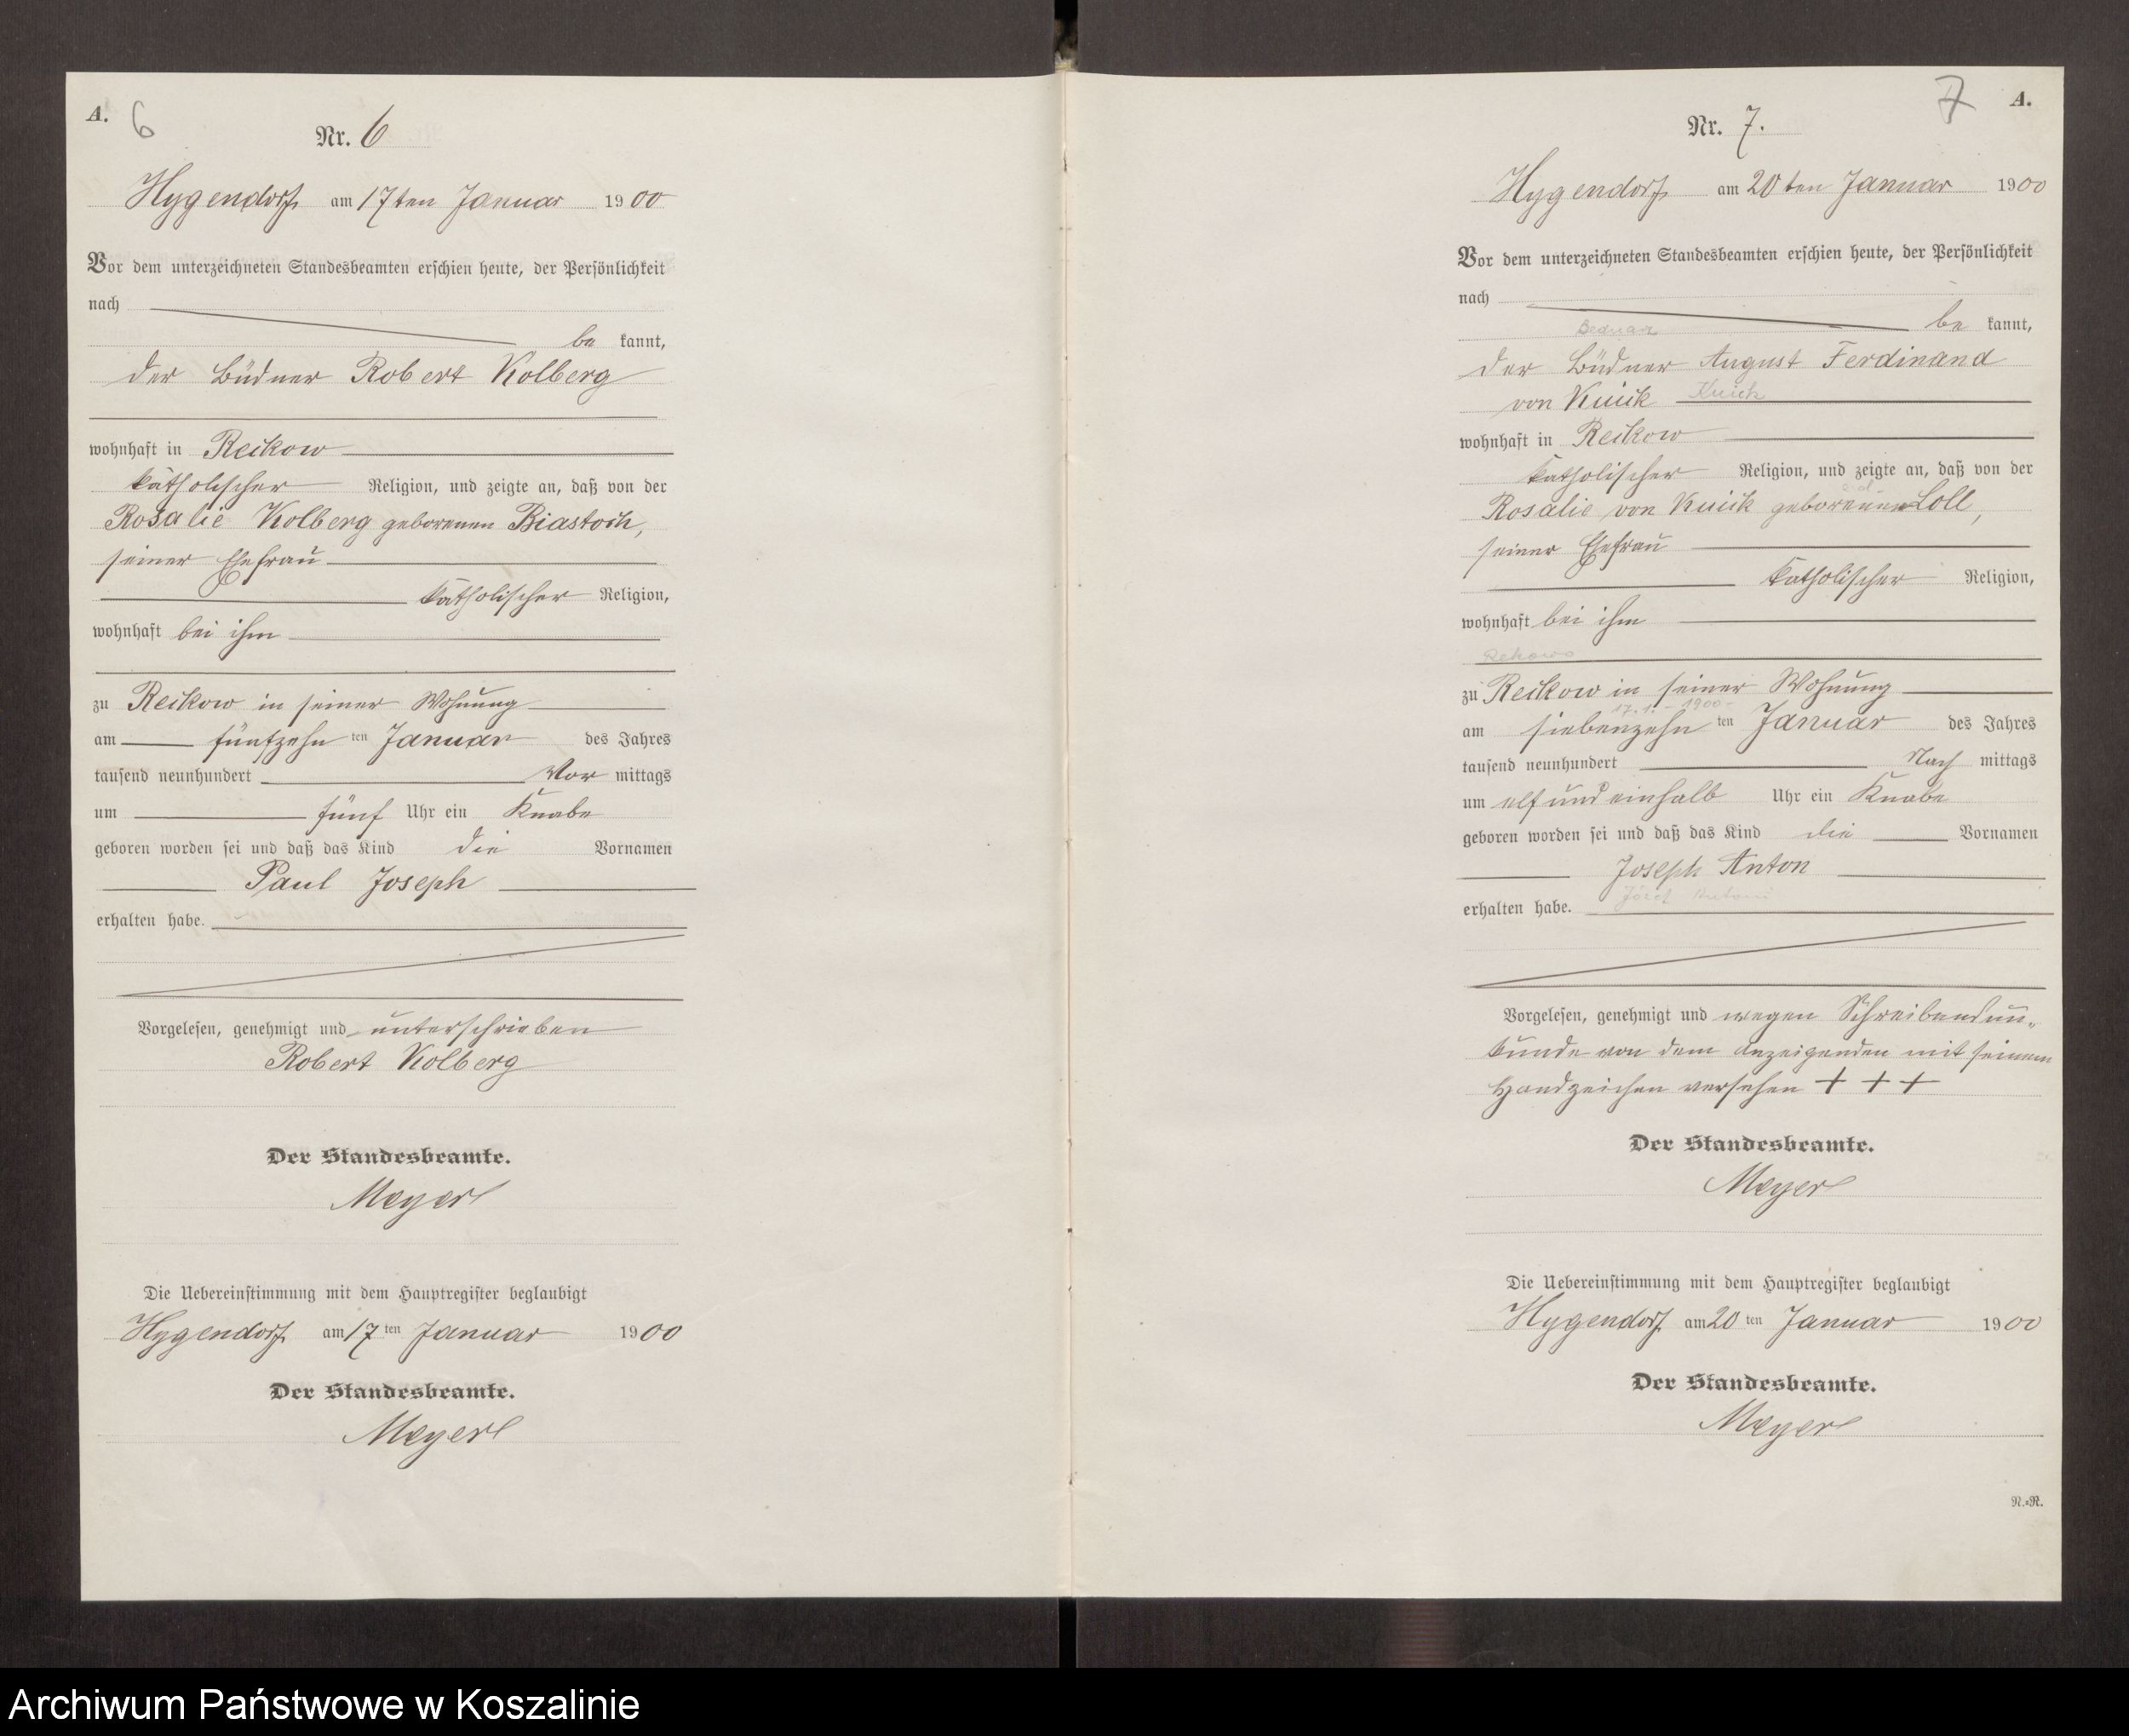 A.
6
Nr. 6
Hygendorf am 17ten Januar 1900
Vor dem unterzeichneten Standesbeamten erschien heute, der Persönlichkeit
nach
be kannt,
der Büdner Robert Kolberg
wohnhaft in Reckow
katholischer Religion, und zeigte an, daß von der
Rosalie Kolberg geborenen Biastoch,
seiner Ehefrau
katholischer Religion,
wohnhaft bei ihm
zu Reckow in seiner Wohnung
am fünfzehn ten Januar des Jahres
tausend neunhundert Vor mittags
um fünf Uhr ein Knabe
geboren worden sei und daß das Kind die Vornamen
Paul Joseph
erhalten habe.
Vorgelesen, genehmigt und unterschrieben
Robert Kolberg
Der Standesbeamte.
Meyer
Die Uebereinstimmung mit dem Hauptregister beglaubigt
Hygendorf am 17 ten Januar 1900
Der Standesbeamte.
Meyer
7 A.
Nr. 7.
Hygendorf am 20ten Januar 1900
Vor dem unterzeichneten Standesbeamten erschien heute, der Persönlichkeit
nach
be kannt,
der Büdner August Ferdinand
von Kuick
wohnhaft in Reckow
katholischer Religion, und zeigte an, daß von der
Rosalie von Kuick geborenen Loll,
seiner Ehefrau
katholischer Religion,
wohnhaft bei ihm
Rekowo
zu Reckow in seiner Wohnung
17.1.-1900-
am siebenzehn ten Januar des Jahres
tausend neunhundert Nach mittags
um elf und einhalb Uhr ein Knabe
geboren worden sei und daß das Kind die Vornamen
Joseph Anton
Józef Antoni
erhalten habe.
Vorgelesen, genehmigt und wegen Schreibensun-
kunde von dem Anzeigenden mit seinem
Handzeichen versehen + + +
Der Standesbeamte.
Meyer
Die Uebereinstimmung mit dem Hauptregister beglaubigt
Hygendorf am 20 ten Januar 1900
Der Standesbeamte.
Meyer
N.=R.
Archiwum Państwowe w Koszalinie